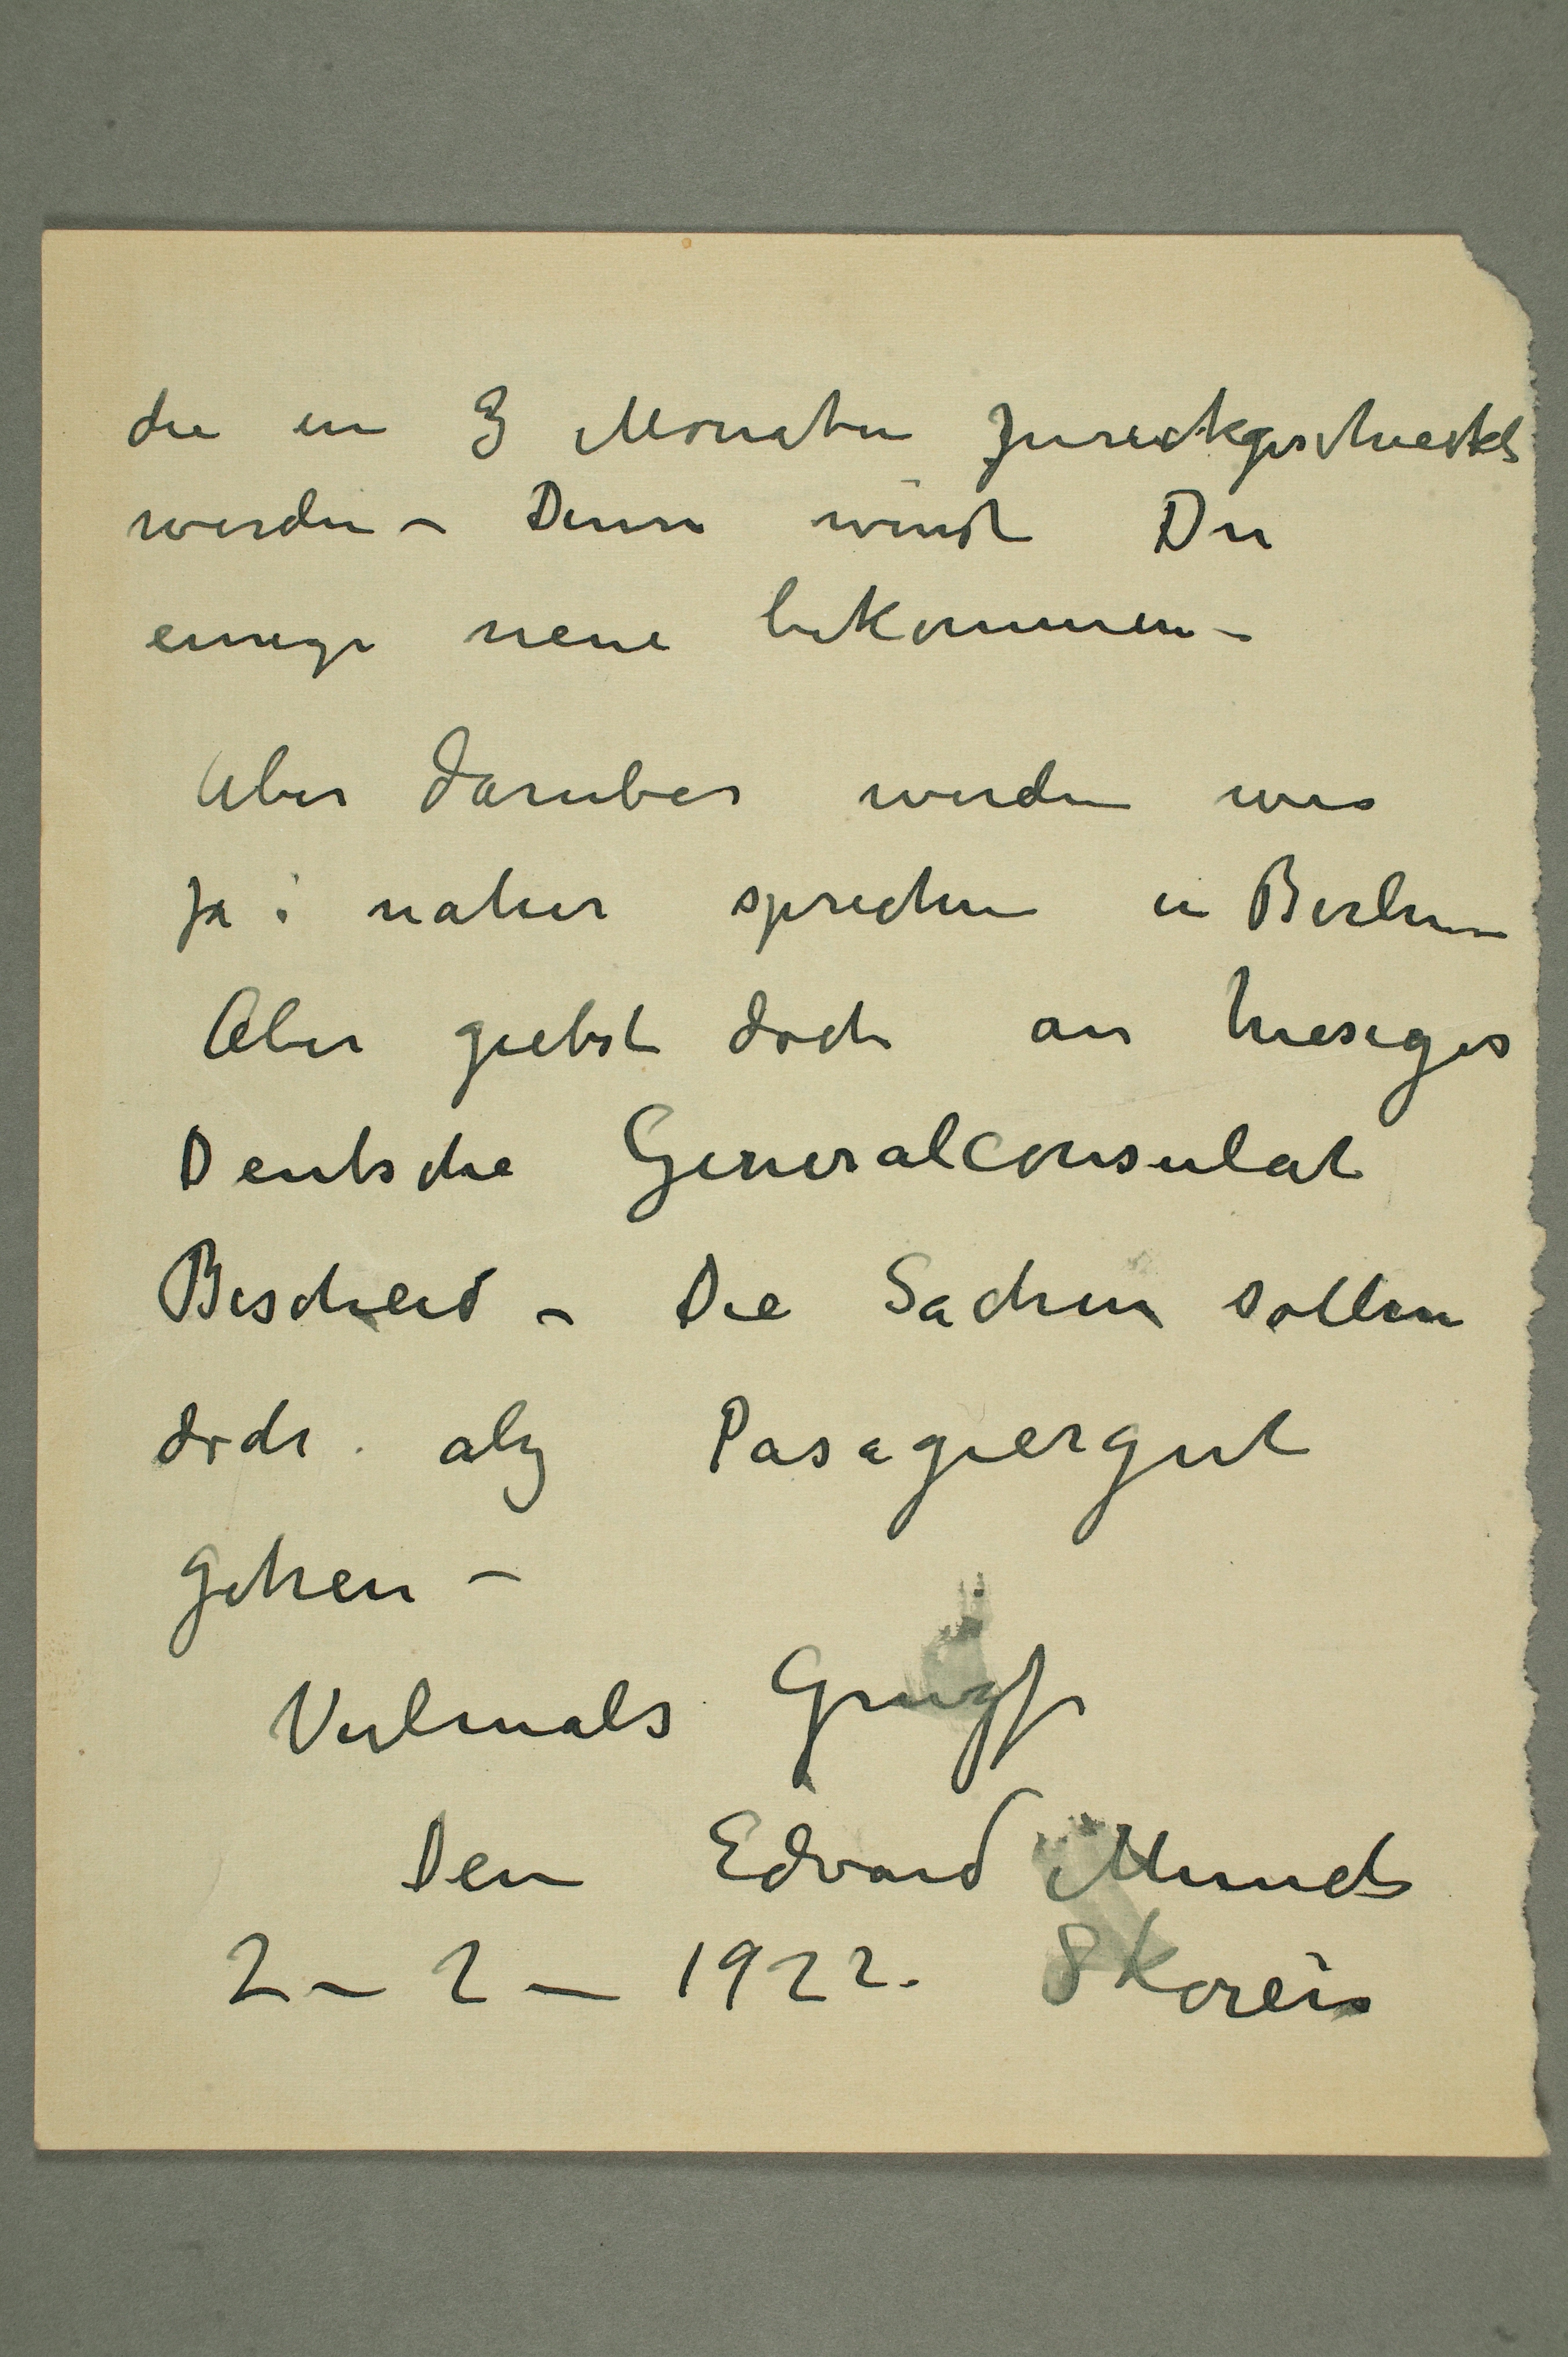 die in 3 Monaten zurückgeschickt
werden – Denn wirdst Du
einige neue bekommen –
Aber daruber werden wir
ja naher sprechen in Berlin
Aber giebst doch an hiesiges
Deutsche Generalconsulat
Bescheid – Die Sachen sollen
doch als Pasagiergut
gehen –
Vielmals Gruße
Dein Edvard Munch
2 – 2 – 1922. Skoreis